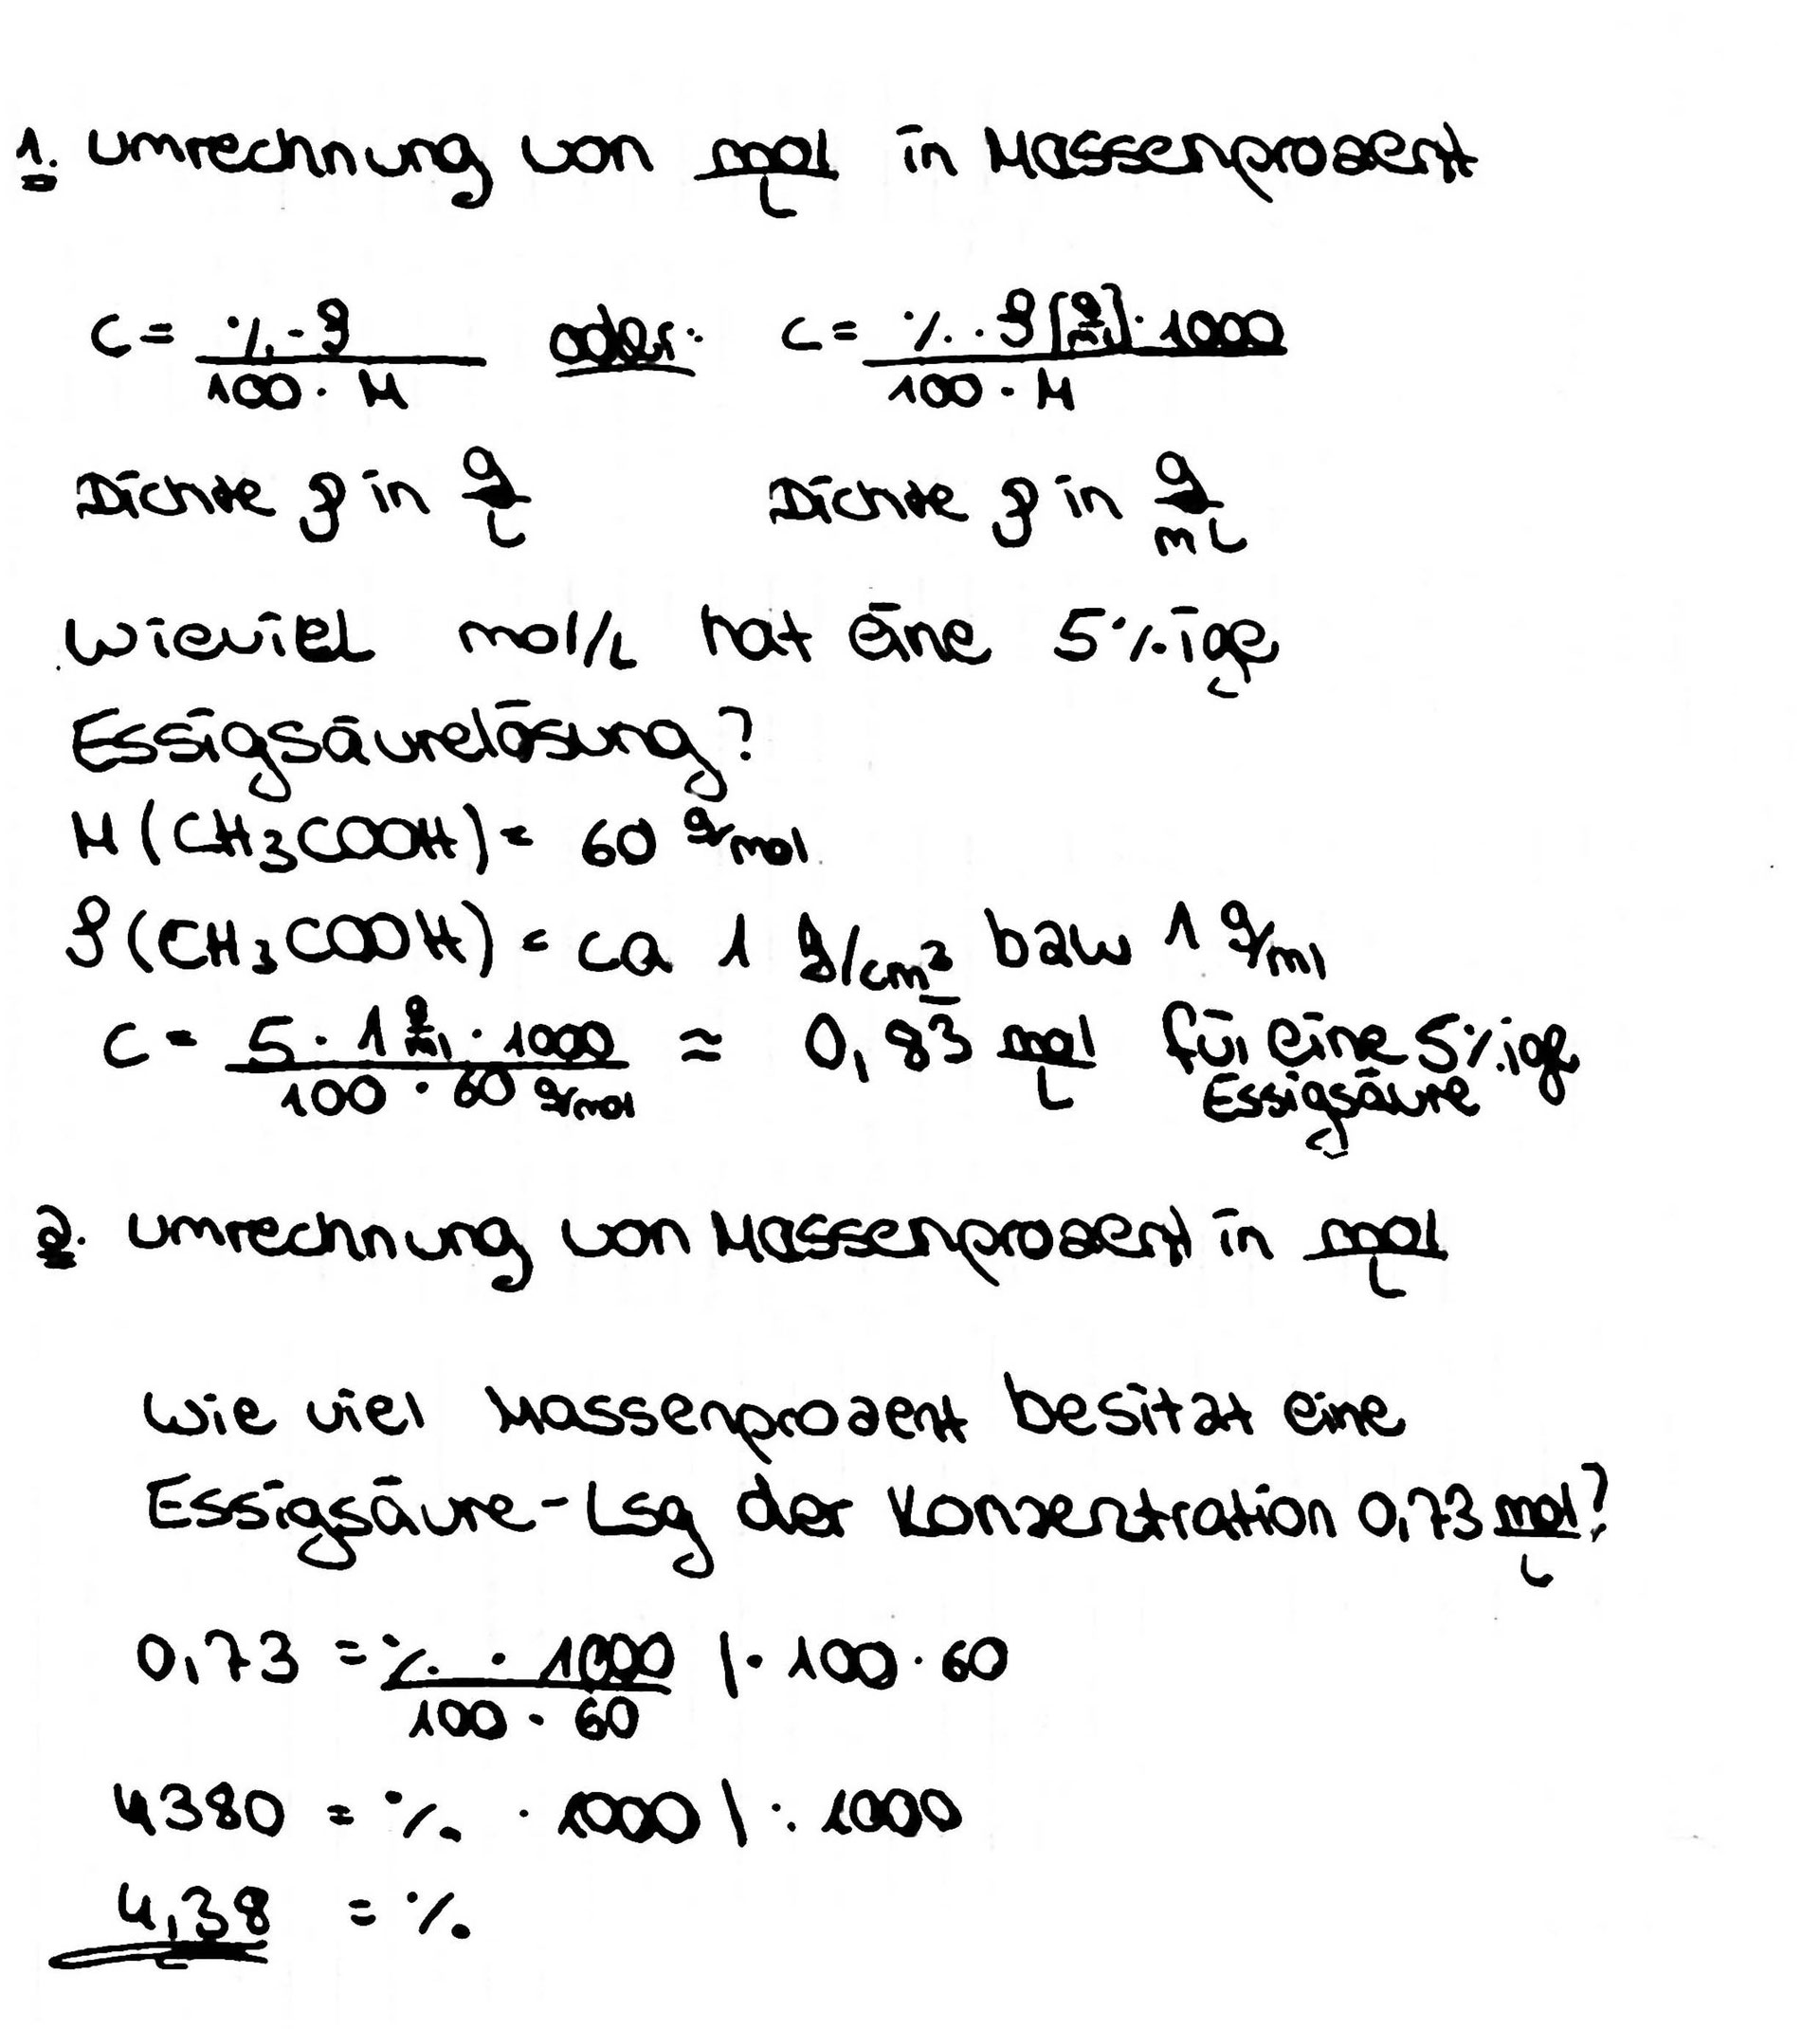 1. Umrechnung von mol/L in Massenprozent
c = % · ρ / 100 · M oder: c = % · ρ [g/ml] · 1000 / 100 · M
Dichte ρ in g/L Dichte ρ in g/mL
Wieviel mol/L hat eine 5%ige
Essigsäurelösung?
M (CH3COOH) = 60 g/mol
ρ (CH3COOH) = ca 1 g/cm³ bzw 1 g/ml
c = 5 · 1 g/ml · 1000 / 100 · 60 g/mol ≈ 0,83 mol/L für eine 5%ige
Essigsäure
2. Umrechnung von Massenprozent in mol/L
Wie viel Massenprozent besitzt eine
Essigsäure-Lsg der Konzentration 0,73 mol/L?
0,73 = % · 1000 / 100 · 60 | · 100 · 60
4380 = % · 1000 | : 1000
4,38 = %